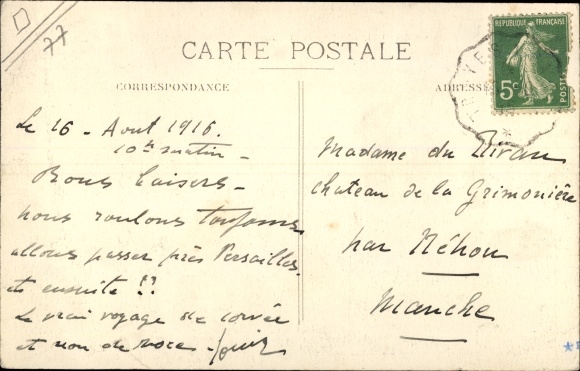 77
CARTE POSTALE
CORRESPONDANCE
ADRESSE
REPUBLIQUE FRANÇAISE
5c
POSTES
Le 16 - Aout 1916.
10h matin -
Bons baisers -
nous roulons toujours
allons passer près Versailles.
et ensuite !!
Le vrai voyage de corvée
et non de noce -
Madame du
chateau de la Grimonière
par Néhou
Manche